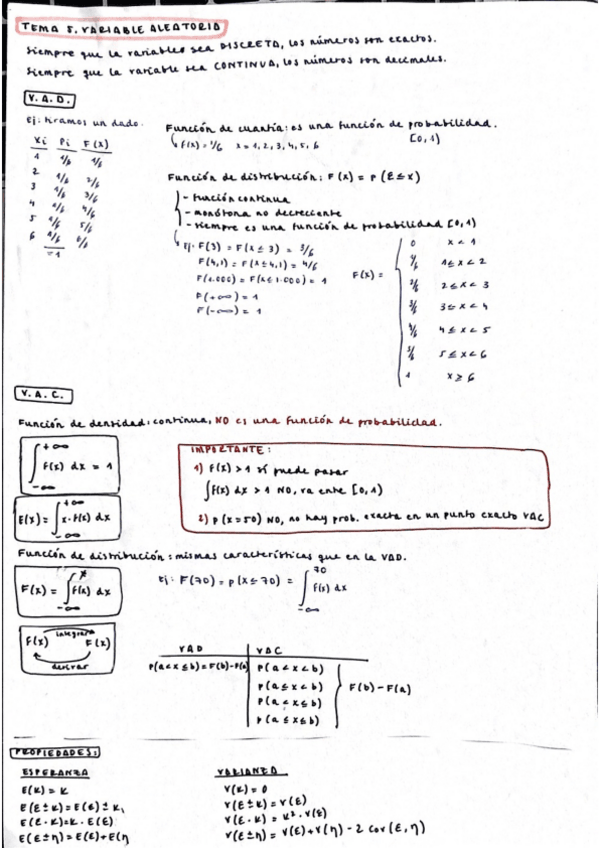 TEMA 5. VARIABLE ALEATORIA
Siempre que la variables sea DISCRETA, los números son exactos.
Siempre que la variable sea CONTINUA, los números son decimales.
V.A.D.
Ej: tiramos un dado.
Xi Pi F(x)
1 1/6 1/6
2 1/6 2/6
3 1/6 3/6
4 1/6 4/6
5 1/6 5/6
6 1/6 6/6
= 1
Función de cuantía: es una función de probabilidad.
f(x) = 1/6 x = 1, 2, 3, 4, 5, 6 [0, 1)
Función de distribución: F(x) = P(ε ≤ x)
- Función continua
- monótona no decreciente
- siempre es una función de probabilidad [0, 1)
Ej. F(3) = F(x ≤ 3) = 3/6
F(4,1) = F(x ≤ 4,1) = 4/6
F(1.000) = F(x ≤ 1.000) = 1
F(+∞) = 1
F(-∞) = 1
F(x) =
0 x < 1
1/6 1 ≤ x < 2
2/6 2 ≤ x < 3
3/6 3 ≤ x < 4
4/6 4 ≤ x < 5
5/6 5 ≤ x < 6
1 x ≥ 6
V.A.C.
Función de densidad: continua, NO es una función de probabilidad.
∫ +∞ -∞ f(x) dx = 1
E(x) = ∫ +∞ -∞ x · f(x) dx
IMPORTANTE:
1) f(x) > 1 sí puede pasar
∫ f(x) dx > 1 NO, va ente [0, 1)
2) P(x = 50) NO, no hay prob. exacta en un punto exacto VAC
Función de distribución: mismas características que en la VAD.
F(x) = ∫ x -∞ f(x) dx
Ej: F(70) = P(x ≤ 70) = ∫ 70 -∞ f(x) dx
integrar
f(x) F(x)
derivar
VAD VAC
P(a < x ≤ b) = F(b) - F(a) P(a < x < b)
P(a ≤ x < b) F(b) - F(a)
P(a < x ≤ b)
P(a ≤ x ≤ b)
PROPIEDADES:
ESPERANZA
E(K) = K
E(ε ± K) = E(ε) ± K
E(ε · K) = K · E(ε)
E(ε ± η) = E(ε) + E(η
VARIANZA
V(K) = 0
V(ε ± K) = V(ε)
V(ε · K) = K² · V(ε)
V(ε ± η) = V(ε) + V(η) - 2 cov(ε, η)